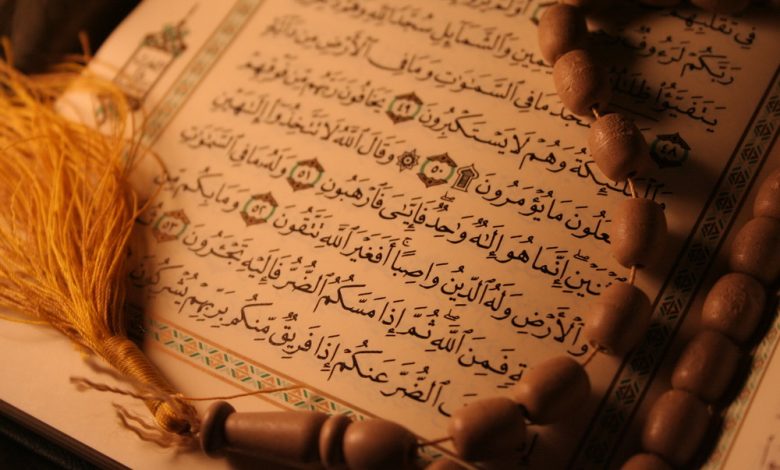 فِى تَقَلُّبِهِمْ
رَبَّكُمْ لَرَءُوفٌ أَوَلَمْ يَرَوْا۟
يَتَفَيَّؤُا۟ ظِلَٰلُهُۥ وَٱلشَّمَآئِلِ سُجَّدًا لِّلَّهِ وَهُمْ
٤٨ مَا فِى ٱلسَّمَٰوَٰتِ وَمَا فِى ٱلْأَرْضِ مِن دَآبَّةٍ
وَٱلْمَلَٰٓئِكَةُ وَهُمْ لَا يَسْتَكْبِرُونَ ٤٩ يَخَافُونَ رَبَّهُم مِّن فَوْقِهِمْ
مَا يُؤْمَرُونَ ۩ ٥٠ ۞ وَقَالَ ٱللَّهُ لَا تَتَّخِذُوٓا۟ إِلَٰهَيْنِ
إِنَّمَا هُوَ إِلَٰهٌ وَٰحِدٌ فَإِيَّٰىَ فَٱرْهَبُونِ ٥١ وَلَهُۥ مَا فِى ٱلسَّمَٰوَٰتِ
وَٱلْأَرْضِ وَلَهُ ٱلدِّينُ وَاصِبًا ۚ أَفَغَيْرَ ٱللَّهِ تَتَّقُونَ ٥٢ وَمَا بِكُم مِّن
فَمِنَ ٱللَّهِ ۖ ثُمَّ إِذَا مَسَّكُمُ ٱلضُّرُّ فَإِلَيْهِ تَجْـَٔرُونَ ٥٣
ٱلضُّرَّ عَنكُمْ إِذَا فَرِيقٌ مِّنكُم بِرَبِّهِمْ يُشْرِكُونَ